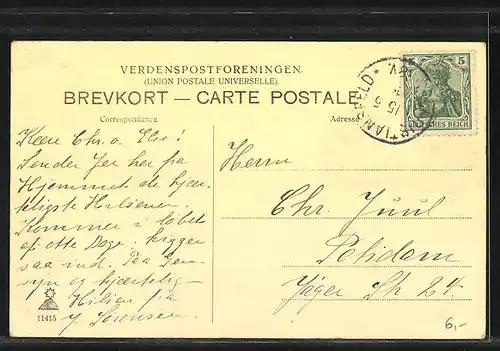 VERDENSPOSTFORENINGEN.
(UNION POSTALE UNIVERSELLE).
BREVKORT — CARTE POSTALE
Correspondance
Adresse
5
DEUTSCHES REICH
15 5
Kære Chr. o. Else!
Sender Jer her fra
Hjemmet de hjer-
teligste Hilsener.
Kommer i løbet
af otte Dage. kigger
saa ind. Paa Gen-
syn og hjertelig
Hilsen fra
J. Sørensen.
Herrn
Chr. Juul
Potsdam
Jäger St 24.
11415
6,-